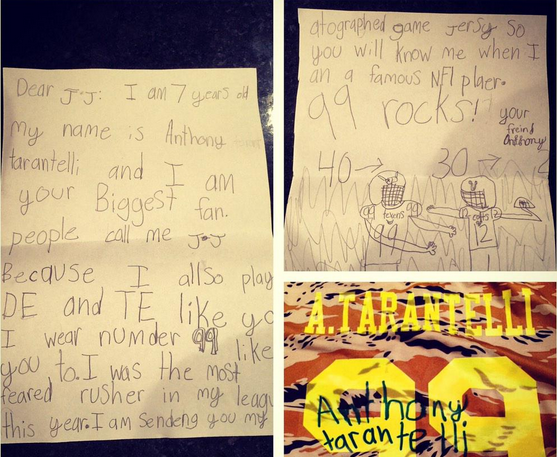 Dear J.J: I am 7 years old
my name is Anthony
tarantelli and I am
your Biggest fan.
people call me J.J
Because I allso play
DE and TE like yo
I wear numder 99 like
you to. I was the most
feared rusher in my leagu
this year. I am Sendeng you my
atographed game Jersy So
you will know me when I
an a famous NFl plaer.
99 rocks!!
your
freind
Anthony!
40→ 30→
99
12
A.TARANTELLI
99
Anthony
tarantelli